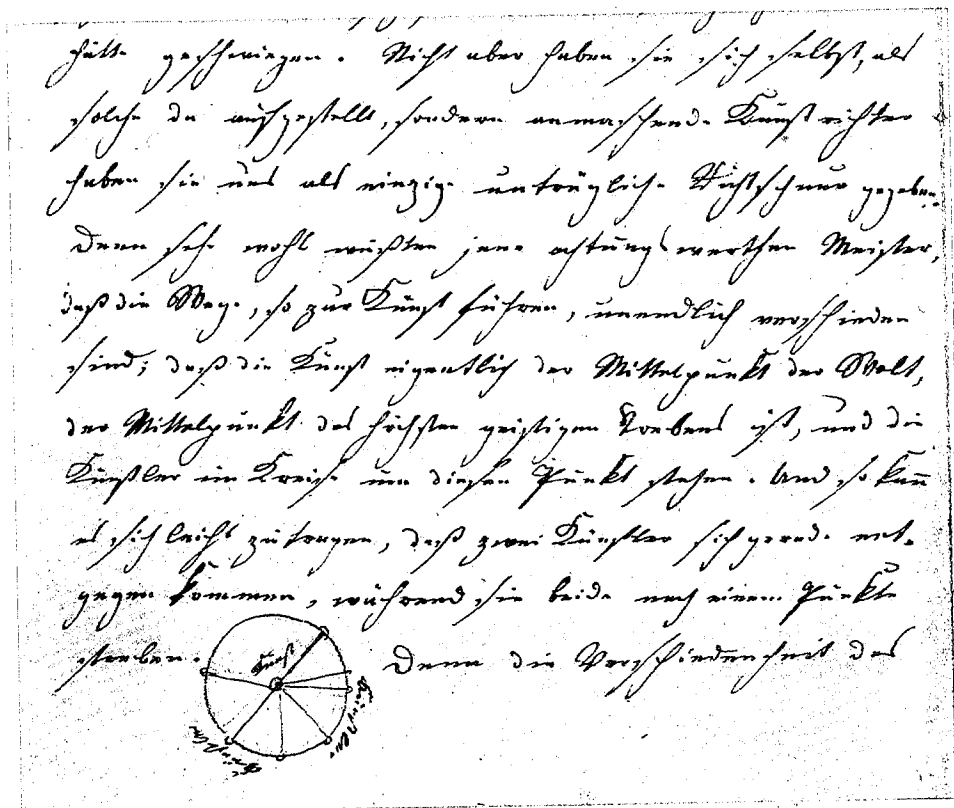 hätte geschwiegen. Nicht aber haben sie sich selbst, als
solche da aufgestellt, sondern anmaschende Kunstrichter
haben sie uns als einzige untrügliche Richtschnur gegeben.
Denn sehr wohl wußten jene achtungswerthen Meister,
daß die Wege, so zur Kunst führen, unendlich verschieden
sind; daß die Kunst eigentlich der Mittelpunkt der Welt,
der Mittelpunkt des höchsten geistigen Strebens ist, und die
Künstler im Kreise um diesen Punkt stehen. Und so kann
es sich leicht zutragen, daß zwei Künstler sich gerade ent-
gegen kommen, während sie beide nach einem Punkte
streben. Denn die Verschiedenheit des
Kunst
Künstler
Künstler